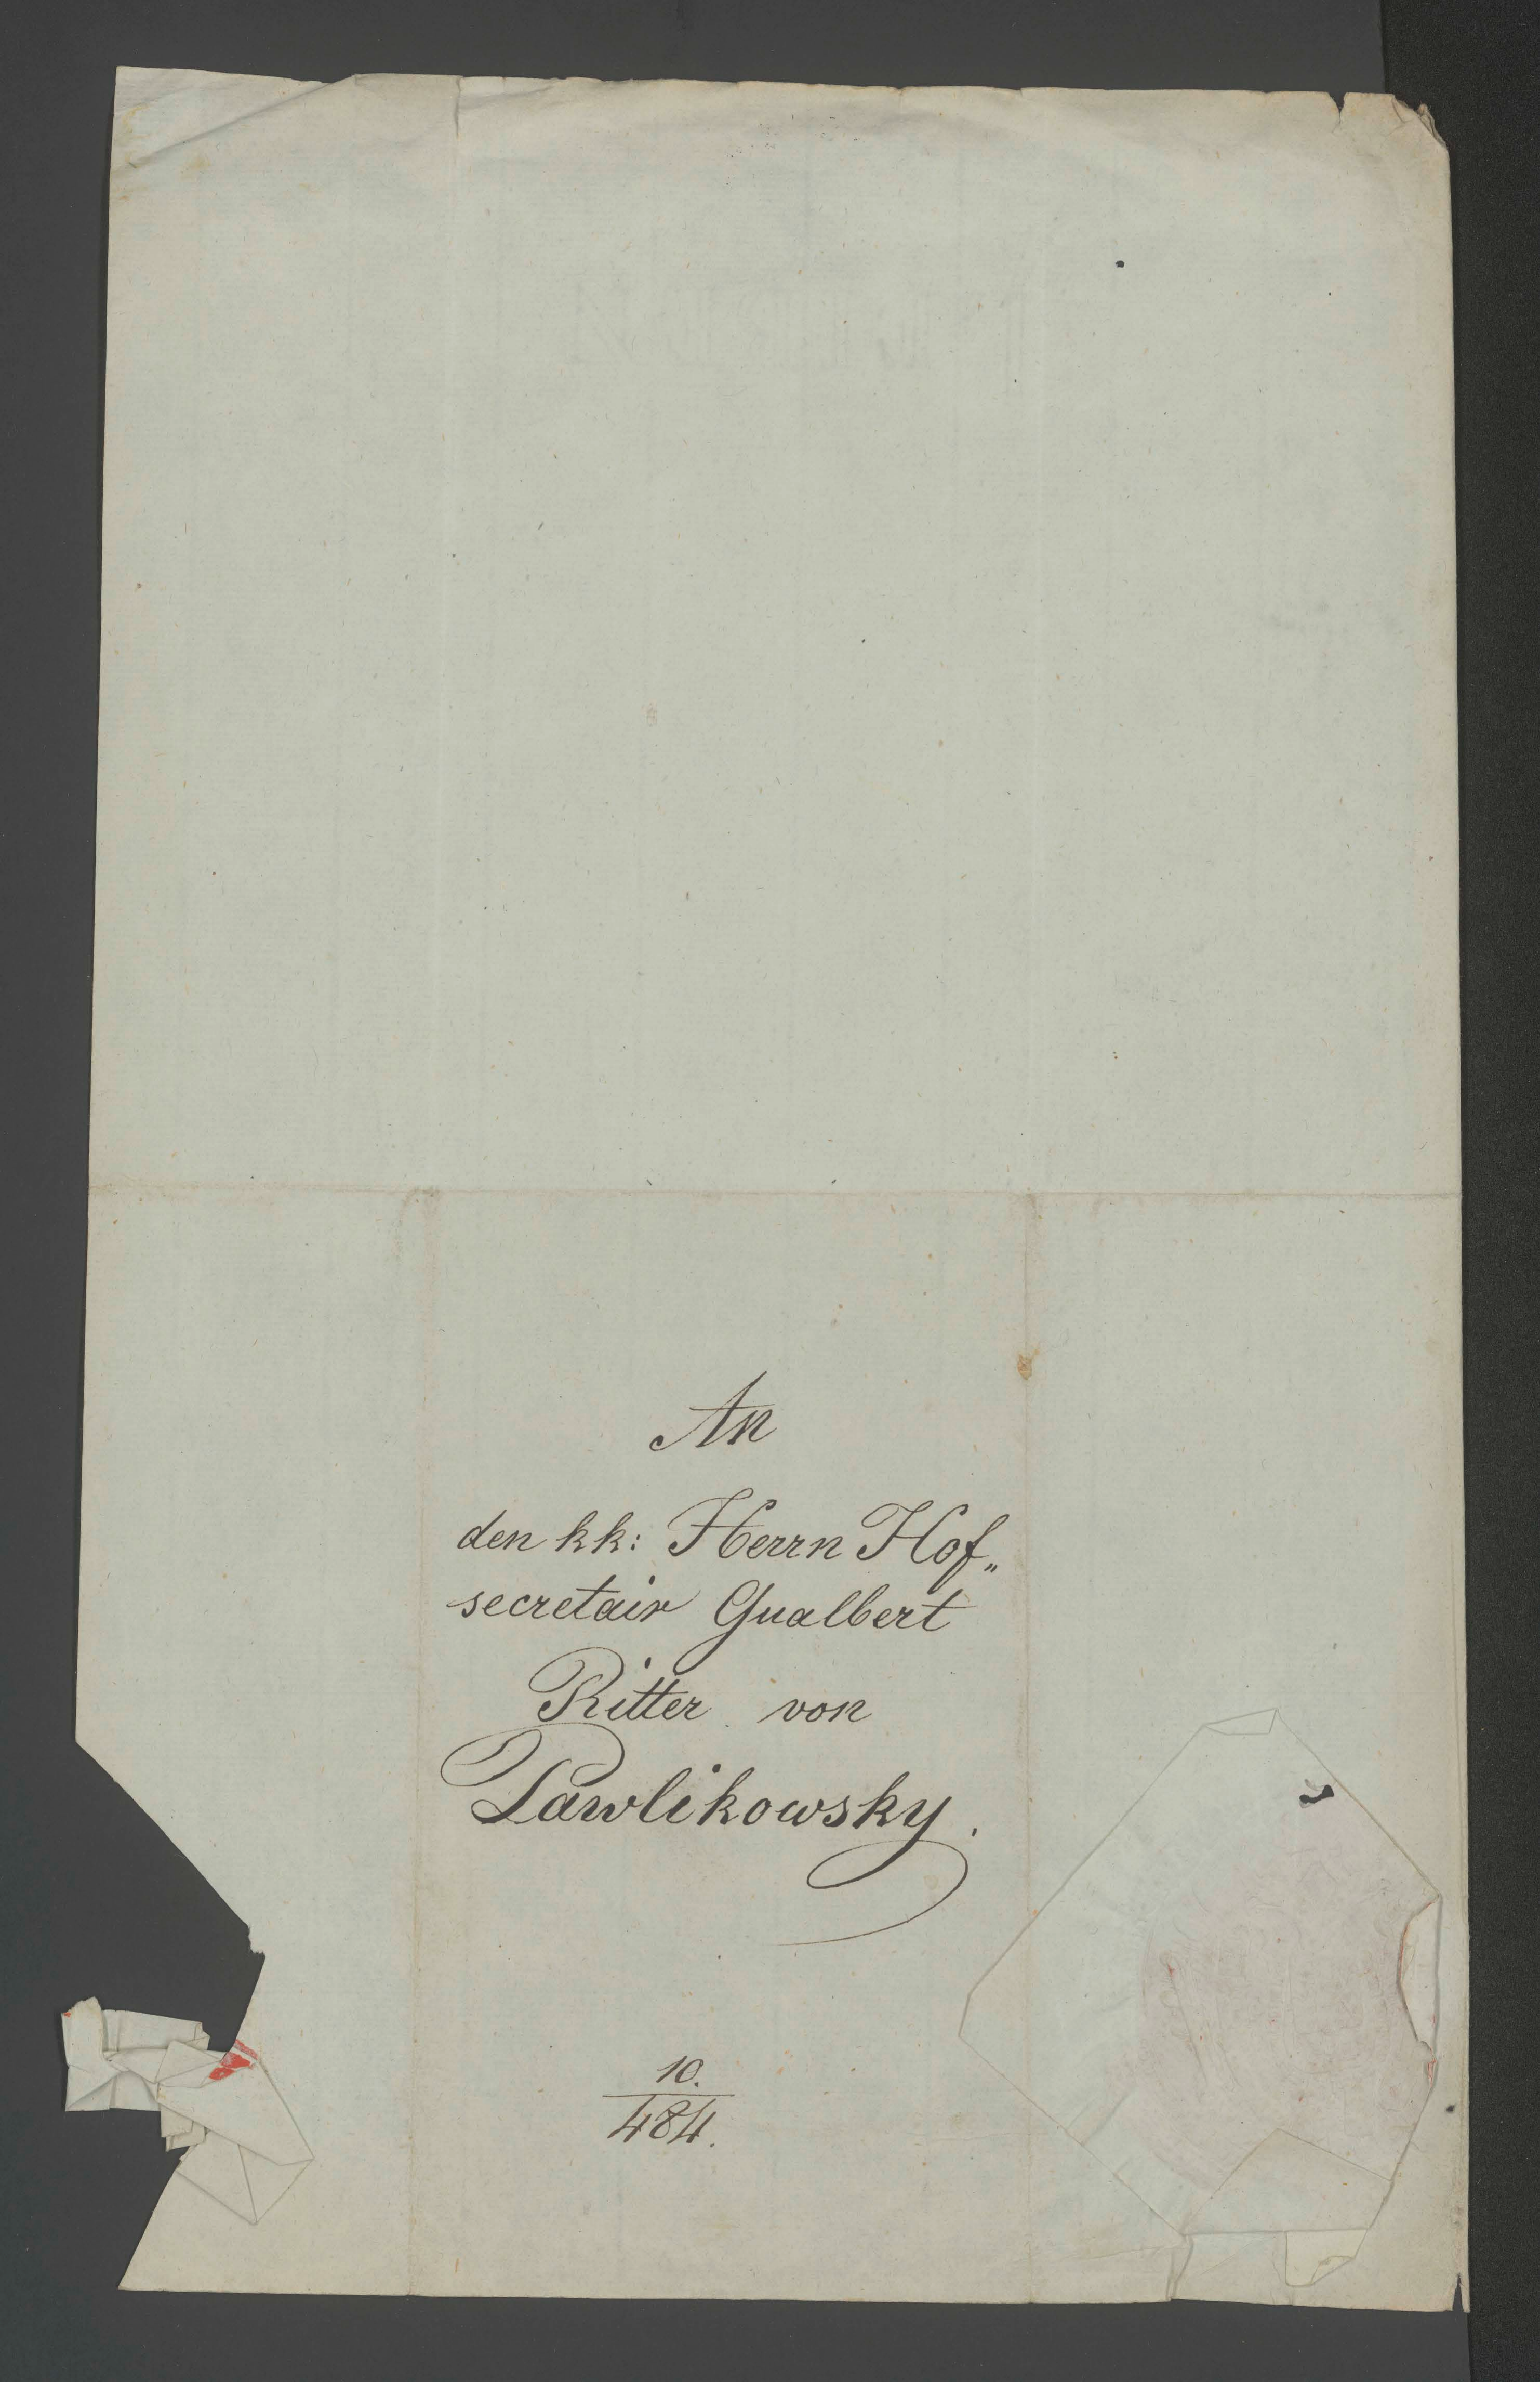 An
den kk: Herrn Hof„
secretair Gualbert
Ritter von
Pawlikowsky.
10.
484.